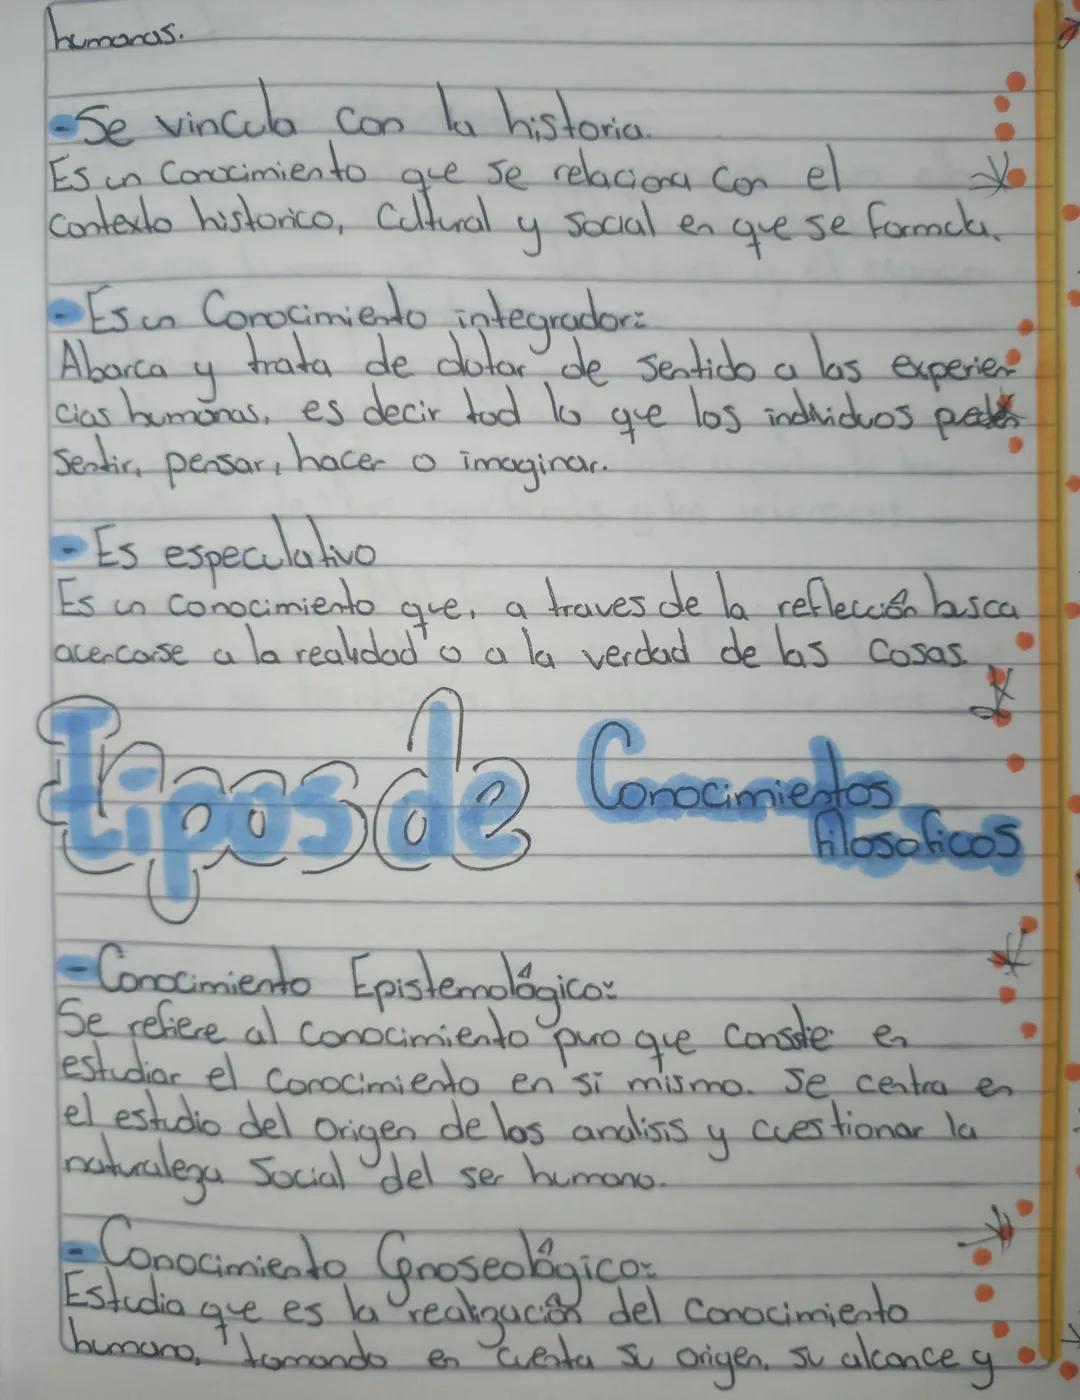 humanas.
-Se vincula con la historia.
Es un Conocimiento que se relaciona con el
contexto historico, Cultural y social en que se formula.
-Es un Conocimiento integrador:
Abarca y trata de dotar de sentido a las experien-
cias humanas, es decir tod lo que los individuos pueden
sentir, pensar, hacer o imaginar.
-Es especulativo
Es un conocimiento que, a traves de la reflección busca
acercarse a la realidad o a la verdad de las cosas.
Tipos de Conocimientos
filosoficos
-Conocimiento Epistemológico:
Se refiere al conocimiento puro que consiste en
estudiar el conocimiento en si mismo. Se centra en
el estudio del origen de los analisis y cuestionar la
naturaleza social del ser humano.
-Conocimiento Gnoseológico:
Estudia que es la realización del conocimiento
humano, tomando en cuenta su origen, su alcance y